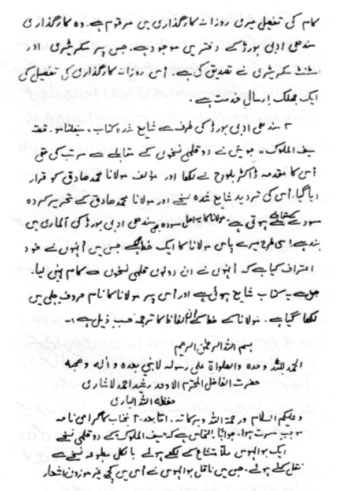 کام کی تفصیل میری روزانہ کارگذاری میں مرقوم ہے۔ وہ کارگذاری
سندھی ادبی بورڈ کے دفتر میں موجود ہے۔ جس پر سکریٹری اور
اسسٹنٹ سکریٹری نے تصدیق کی ہے۔ اس روزانہ کارگذاری کی تفصیل کی
ایک جھلک ارسال خدمت ہے۔
۲ سندھی ادبی بورڈ کی طرف سے شایع شدہ کتاب۔ قصہ
سیف الملوک۔ جو میں نے دو قلمی نسخوں کے مقابلے سے مرتب کی تھی
اس کا مقدمہ ڈاکٹر بلوچ نے لکھا اور مؤلف مولانا محمد صادق کو قرار
دیا گیا۔ اس کی تردید شایع شدہ نسخے اور مولانا محمد صادق کے تحریر کردہ
مسودے کے مقابلے سے ہوتی ہے۔ مولانا کا یہ اصل مسودہ سندھی ادبی بورڈ کی الماری میں
بند ہے۔ اسی طرح میرے پاس مولانا کا ایک خط ہے جس میں انہوں نے خود
اعتراف کیا ہے کہ انہوں نے ان دونوں قلمی نسخوں سے کام نہیں لیا۔
یہ کتاب شایع ہوئی ہے اور اس پر مولانا کا نام حروف جلی میں
لکھا گیا ہے۔ مولانا کے خط کے الفاظ کا ترجمہ حسب ذیل ہے:۔
بسم اللہ الرحمٰن الرحیم
الحمد للہ وحدہ والصلواۃ علی رسولہ لا نبی بعدہ و آلہ و صحبہ
حضرت الفاضل المحترم الاوحد رشید احمد لاشاری
حفظہ اللہ الباری
وعلیکم السلام ورحمۃ اللہ وبرکاتہ۔ اما بعد۔ آنجناب کا گرامی نامہ
موجب مسرت ہوا۔ جواباً التماس ہے کہ سیف الملوک کے دو قلمی نسخے
ایک بوالہوس ملا شعاع کے لکھے ہوئے بالکل مطبوعہ نسخے سے
نقل کئے ہوئے۔ جس میں ناقل بوالہوس نے اس میں کچھ غیر موزون اشعار